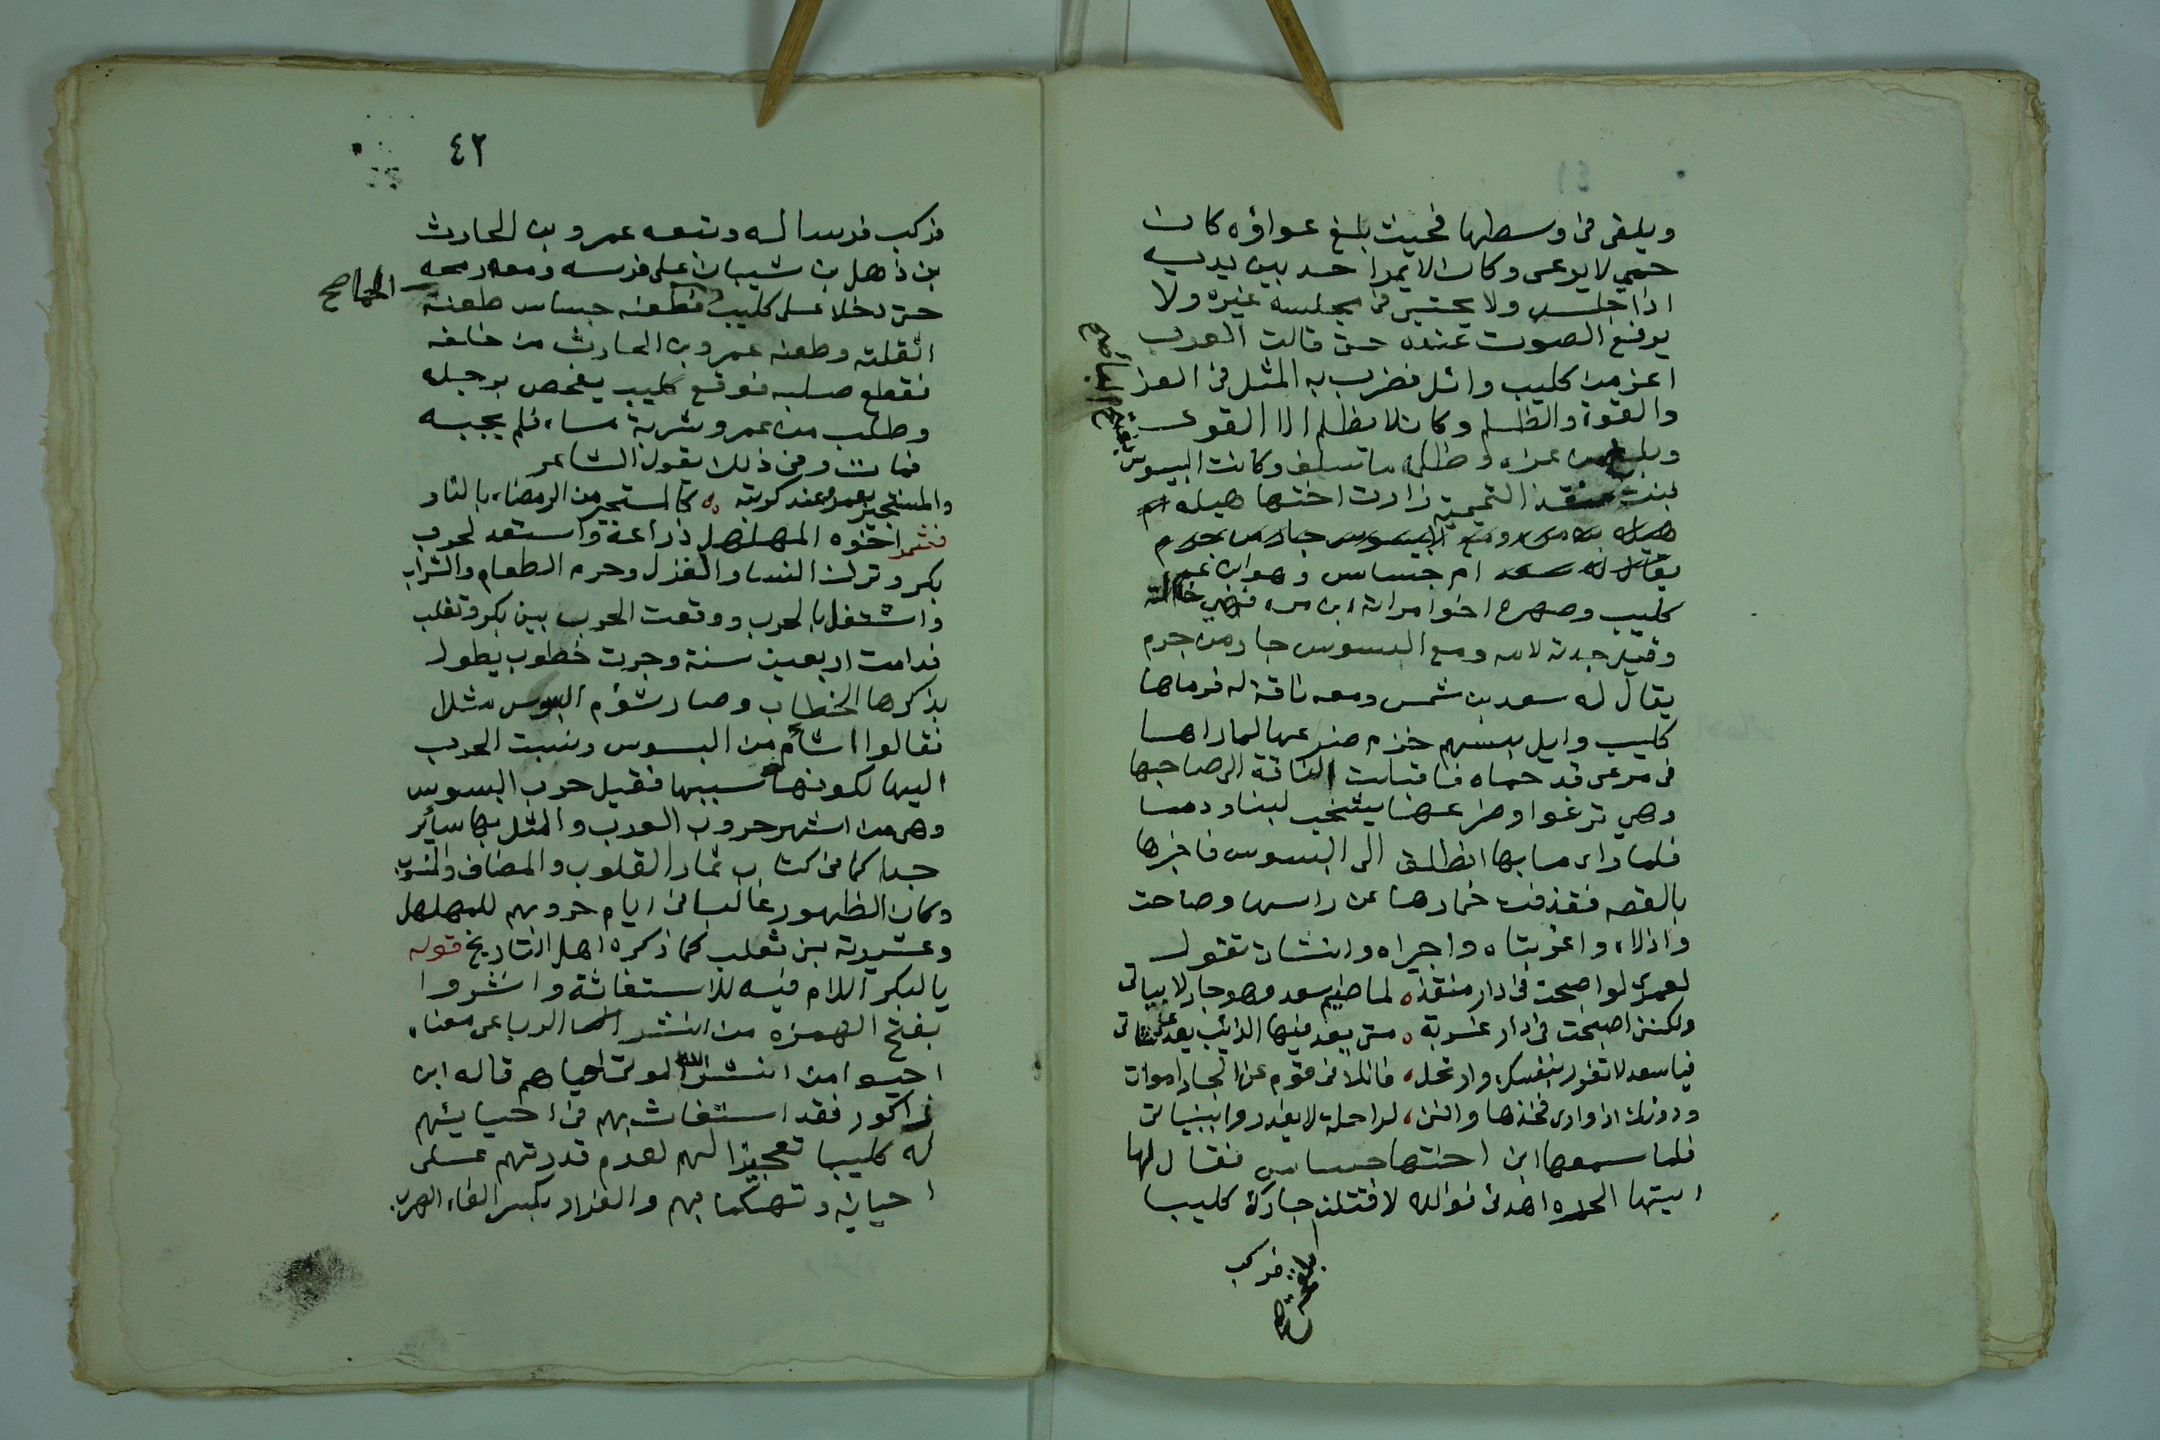 ويلقى في وسطها فحيث بلغ عواؤه كان
حمي لا يرعى وكان لا يمر احد بين يديه
اذا جلس ولا يحتبي في مجلسه غيره ولا
يرفع الصوت عنده حتى قالت العرب
اعز من كليب وائل فضرب به المثل في العز
والقوة والظلم وكان لا يظلم الا القوى
وبلغ من عزه وظلمه ما سلف وكانت البسوس
بنت منقذ التميمية زارت اختها هيله ام
ومع البسوس جار من جرم
يقال له سعد ام جساس وهو ابن عم
كليب وصهره اخوا مراته ابن مره فهي خالته
وقيل جدته لامه ومع البسوس جار من جرم
يقال له سعد بن شمس ومعه ناقة له فرماها
كليب وايل بسهم خزم ضرعها لما راها
في مرعى قد حماه فاقبلت الناقة الى صاحبها
وهي ترغوا وضرعها يشخب لبنا ودما
فلما راى ما بها انطلق الى البسوس فاخبرها
بالقصه فقذفت خمارها عن راسها وصاحت
واذلاه واغربتاه واجيراه وانشات تقول
لعمري لو اصبحت في دار منقذ ٥ لما ضيم سعد وهو جار لابياتي
ولكنني اصبحت في دار غربة ٥ متى يعد فيها الذئب يعد على شاتي
فيا سعد لا تغرر بنفسك وارتحل ، فانك في قوم عن الجار اموات
ودونك اذوادي فخذها وانني ، لراحلة لا يغدروا ببنياتي
فلما سمعها ابن اختها جساس فقال لها
ايتها الحره اهدئي فوالله لاقتلن بجارك كليبا
فركب
بلغ مقابلة
٤٢
فركب فرسا له وتبعه عمرو بن الحارث
بن ذاهل بن شيبان على فرسه ومعه رمحه
حتى دخلا على كليب فطعنه جساس طعنة
اثقلته وطعنه عمرو بن الحارث من خلفه
فقطع صلبه فوقع كليب يفحص برجيله
وطلب من عمرو شربة ماء فلم يجبه
فمات وفي ذلك يقول الشاعر
والمستجير بعمرو عند كربته ٥ كالمستجير من الرمضاء بالنار
فشمر اخوه المهلهل ذراعه واستعد لحرب
بكر وترك النسا والغزل وحرم الطعام والشراب
واشتغل بالحرب ووقعت الحرب بين بكر وتغلب
فدامت اربعين سنة وجرت خطوب يطول
بذكرها الخطاب وصار شؤم البسوس مثلا
فقالوا اشأم من البسوس ونسبت الحرب
اليها لكونها سببها فقيل حرب البسوس
وهي من اشهر حروب العرب والمثل بها سائر
جدا كما في كتاب ثمار القلوب والمضاف والمنسوب
وكان الظهور غالبا في ايام حروبهم للمهلهل
وعشيرته بني تغلب كما ذكره اهل التاريخ قوله
يا لبكر اللام فيه للاستغاثة وانشروا
بفتح الهمزه من انشر الرباعي معناه
احيوا من انشر الله الموتى احياهم قاله ابن
اكور فقد استغاث بهم في احيائهم
له كليبا تعجيزا لهم لعدم قدرتهم على
احيائه وتهكما بهم والفرار بكسر الفاء الهرب